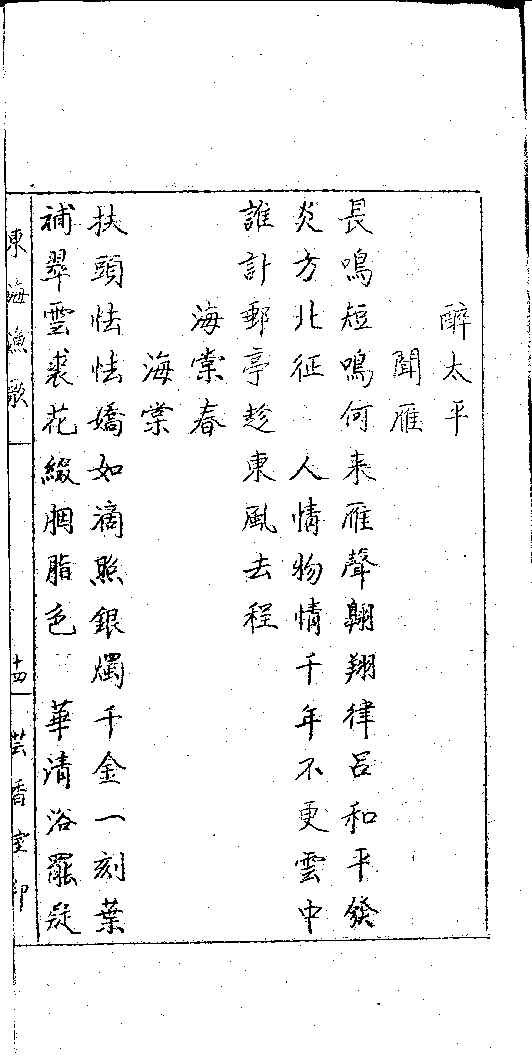 醉太平
聞雁
長鳴短鳴何來雁聲翱翔律呂和平發
炎方北征　人情物情千年不更雲中
誰計郵亭趁東風去程
海棠春
海棠
扶頭怯怯嬌如滴照銀燭千金一刻葉
補翠雲裘花綴胭脂色　華清浴罷疑
東海漁歌
十四
芸香室印